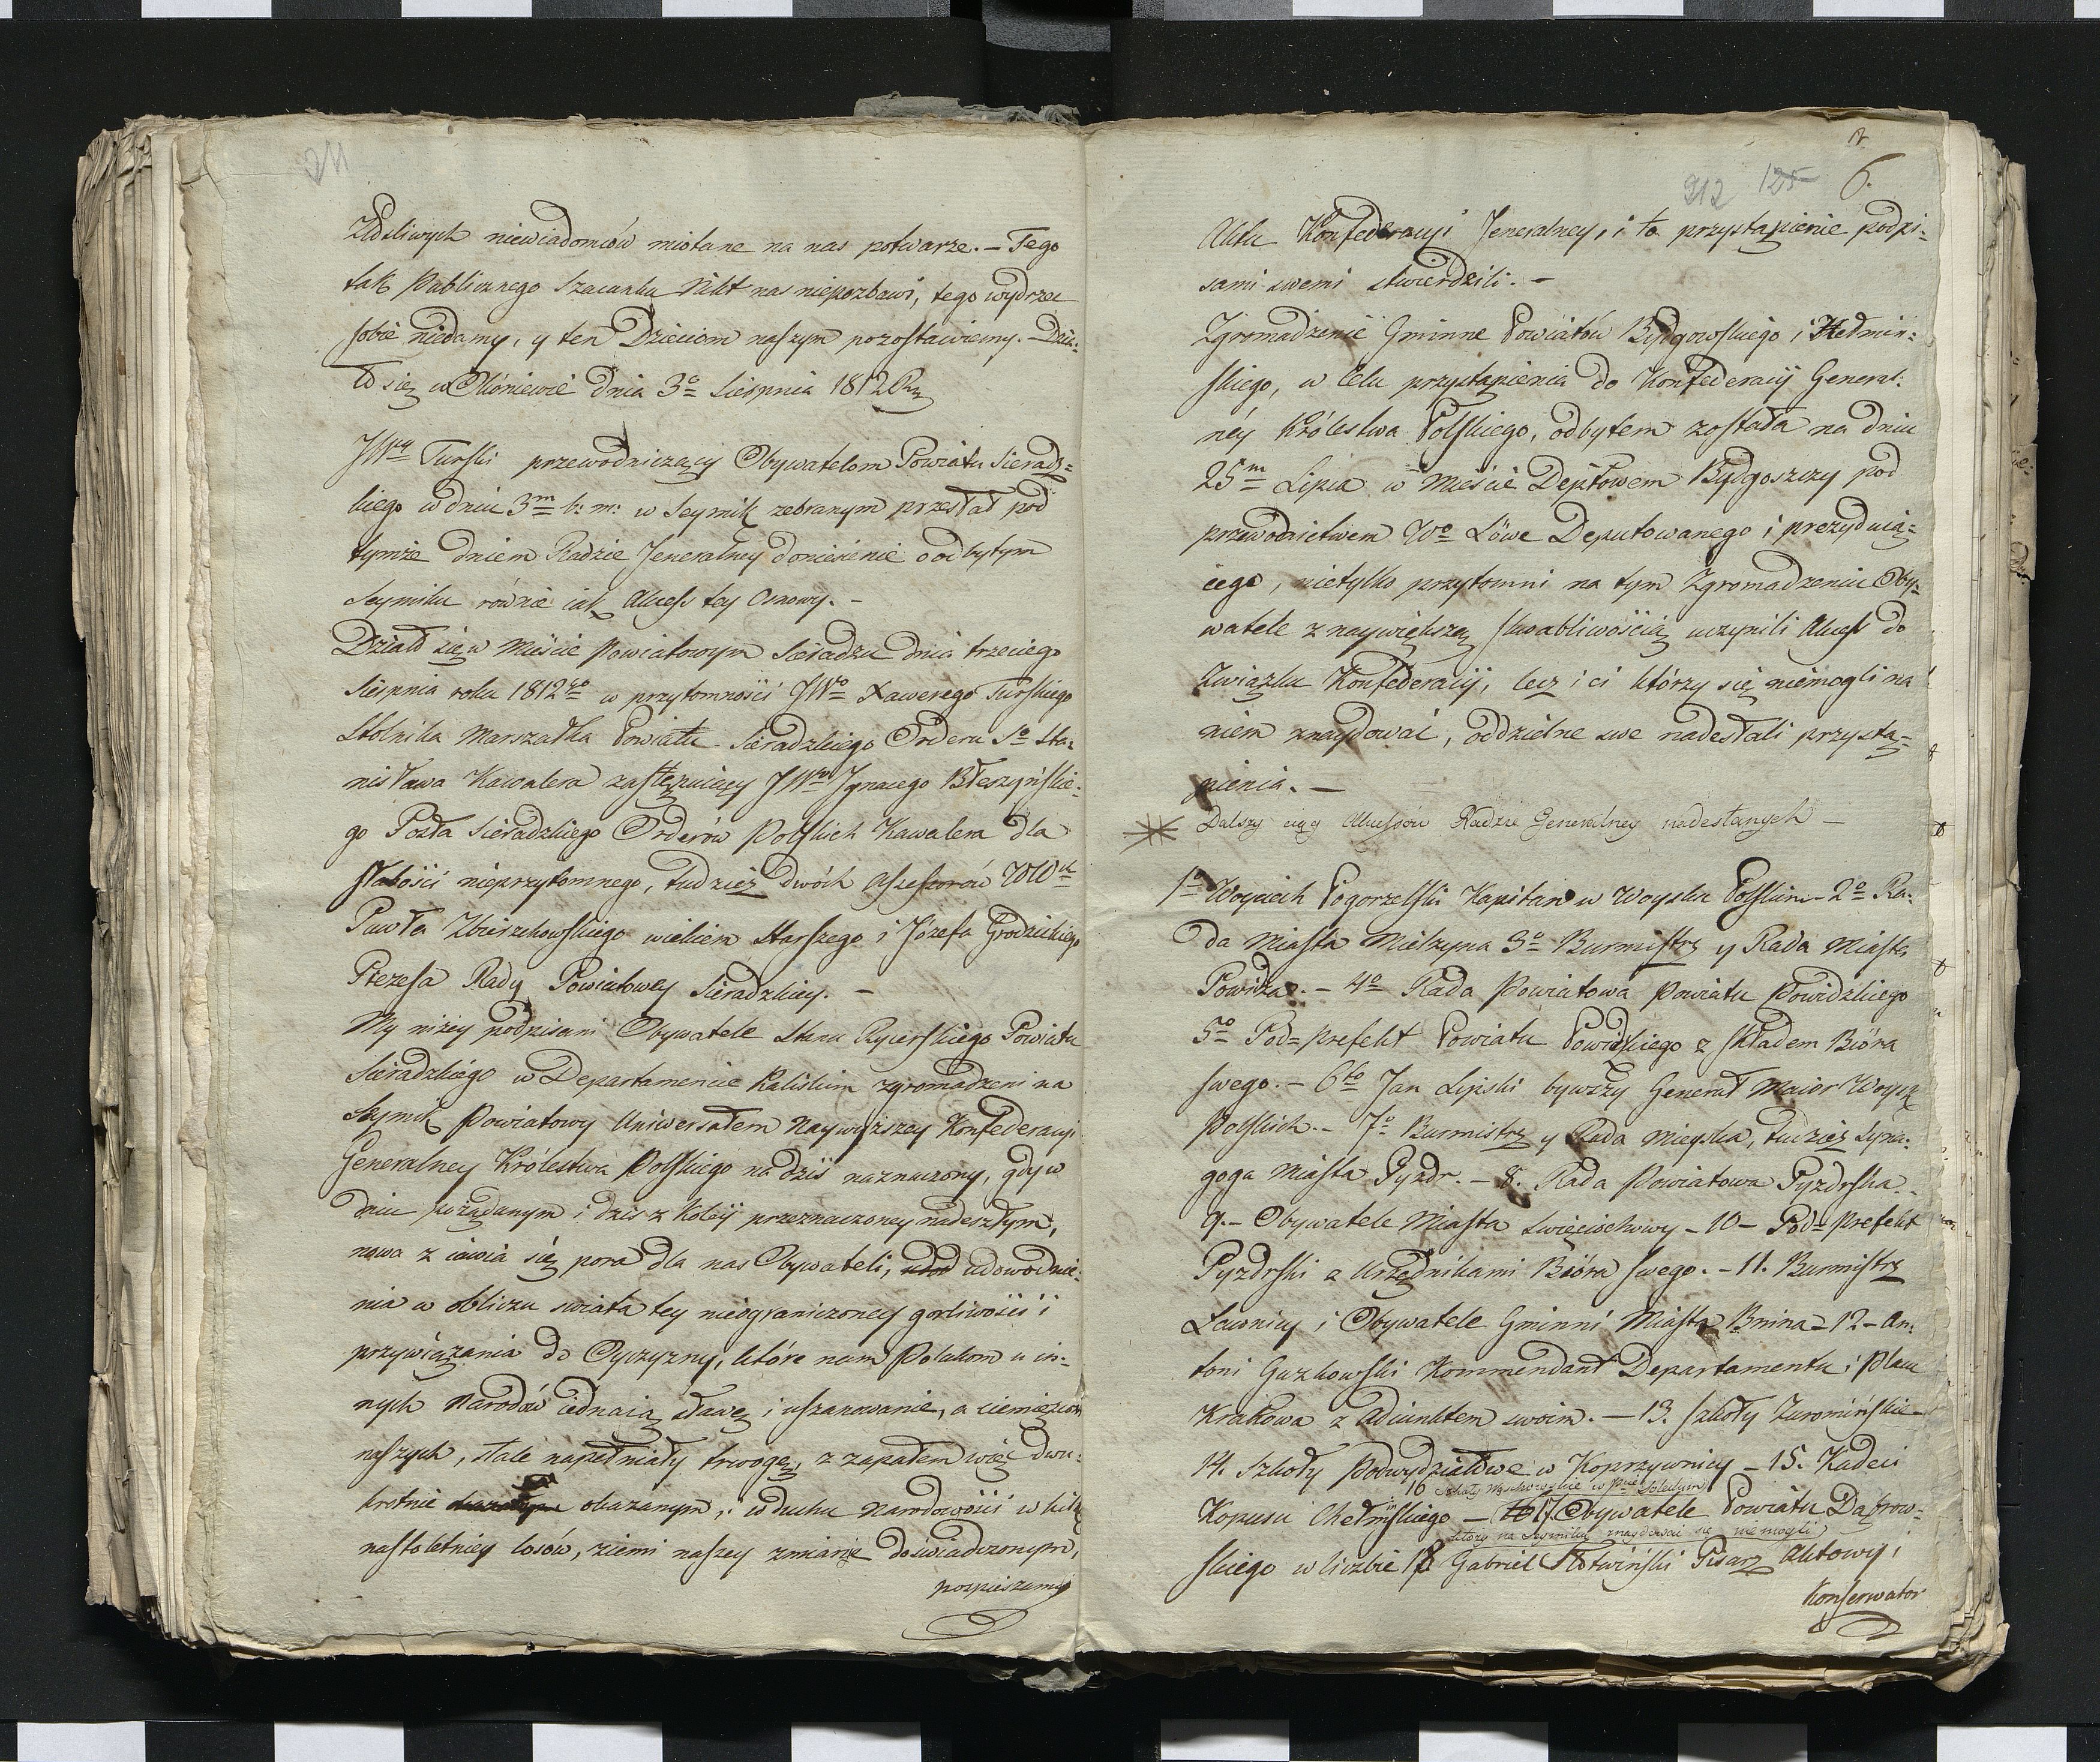 211
Zdsliwych niewiadomców miotane na nas potwarze. – Tego
tak Publicznego szacunku Nikt nas niepozbawi, tego wydrzec
sobie niedamy, y ten Dzieciom naszym pozostawiemy. – Dzia:
ło się w Oliśniewie dnia 3º Sierpnia 1812 R
JWny Turski przewodniczący Obywatelom Powiatu Sieradz=
kiego w dniu 3m b: m: w Seymik zebranym przesłał pod
tymże dniem Radzie Jeneralney doniesienie o odbytym
Seymiku równie iak Akcess tey Osnowy. –
Działo się w Mieście Powiatowym Sieradzu dnia trzeciego
Sierpnia roku 1812go w przytomności JWo Xawerego Turskiego
Stolnika Marszałka Powiatu Sieradzkiego Orderu So Sta:
nisława Kawalera zastępuiący JWo Jgnacego Błeszyńskie:
go Posła Sieradzkiego Orderów Polskich Kawalera dla
słabości nieprzytomnego, tudzież dwóch Assessorów WWch
Pawła Zbierzchowskiego wiekiem starszego i Józefa Grodzickiego
Prezesa Rady Powiatowey Sieradzkiey. –
My niżey podpisani Obywatele Stanu Rycerskiego Powiatu
Sieradzkiego w Departamencie Kaliskim zgromadzeni na
Seymik Powiatowy Uniwersałem Naywyższey Konfederacyi
Generalney Królestwa Polskiego na dziś naznaczony, gdy w
dniu pożądanym i dziś z Kolęij przeznaczoney nadeszłym,
nowa z iawia się pora dla nas Obywateli, udowodnie:
nia w obliczu swiata tey nieograniczoney gorliwości i
przywiązania do Oyczyzny, które nam Polakom u in:
nych Narodów iednaią sławę i uszanowanie, a ciemięzców
naszych, stale napełniały trwogą, z zapałem więc dwu:
krotnie okazanym, i w duchu Narodowości w kilku
nastoletniey losów, ziemi naszey zmianie doswiadczonym,
pospieszamy
212 125 6.
Aktu Konfederacyi Jeneralney, i to przystąpienie podpi:
sami swemi stwierdzili. –
Zgromadzenie Gminne Powiatów Bydgowskiego i Hełmiń:
skiego, w celu przystąpienia do Konfederacyi General:
néy Królestwa Polskiego, odbytem została na dniu
25m Lipca w mieście Deptowem Bydgoszczy pod
przewodnictwem Wo Löwe Deputowanego i prezyduią=
cego, nietylko przytomni na tym Zgromadzeniu Oby=
watele z naywiększą skwabliwością uczynili Akces do
Związku Konfederacyi, lecz i ci którzy się niemogli na
niem znaydować, oddzielne swe nadesłali przystą=
pienia. –
Dalszy ciąg Akcessów Radzie Generalney nadesłanych –
1º Woyciech Pogorzelski Kapitan w Woysku Polskim – 2º Ra:
da Miasta Mielżyna 3º Burmistrz y Rada Miasta
Powidza. – 4º Rada Powiatowa Powiatu Powidzkiego
5to Pod=prefekt Powiatu Powidskiego z składem Bióra
swego. – 6to Jan Lipski bywszy Generał Maior Woysk
Polskich. – 7º Burmistrz y Rada mieyska, tudzież Syna:
goga Miasta Pyzdr. – 8. Rada Powiatowa Pyzdrska. –
9. – Obywatele Miasta Swięciechowy – 10 – Pod=prefekt
Pyzdrski z Urzędnikami Bióra swego. – 11. Burmistrz
Ławnicy i Obywatele Gminni Miasta Bnina – 12 – An:
toni Guzkowski Kommendant Departamentu i Placu
Krakowa z Adiunktem swoim. – 13. Szkoły Zuromińskie –
14. Szkoły Podwydziałowe w Koprzywnicy – 15. Kadeci
16 Szkoły
Kopusu Chełmińskiego – 17 Obywatele Powiatu Dąbrow=
którzy na Seymiku znaydować się nie mogli
skiego w liczbie 18 Gabriel Słotwiński Pisarz Aktowy i
Konserwator